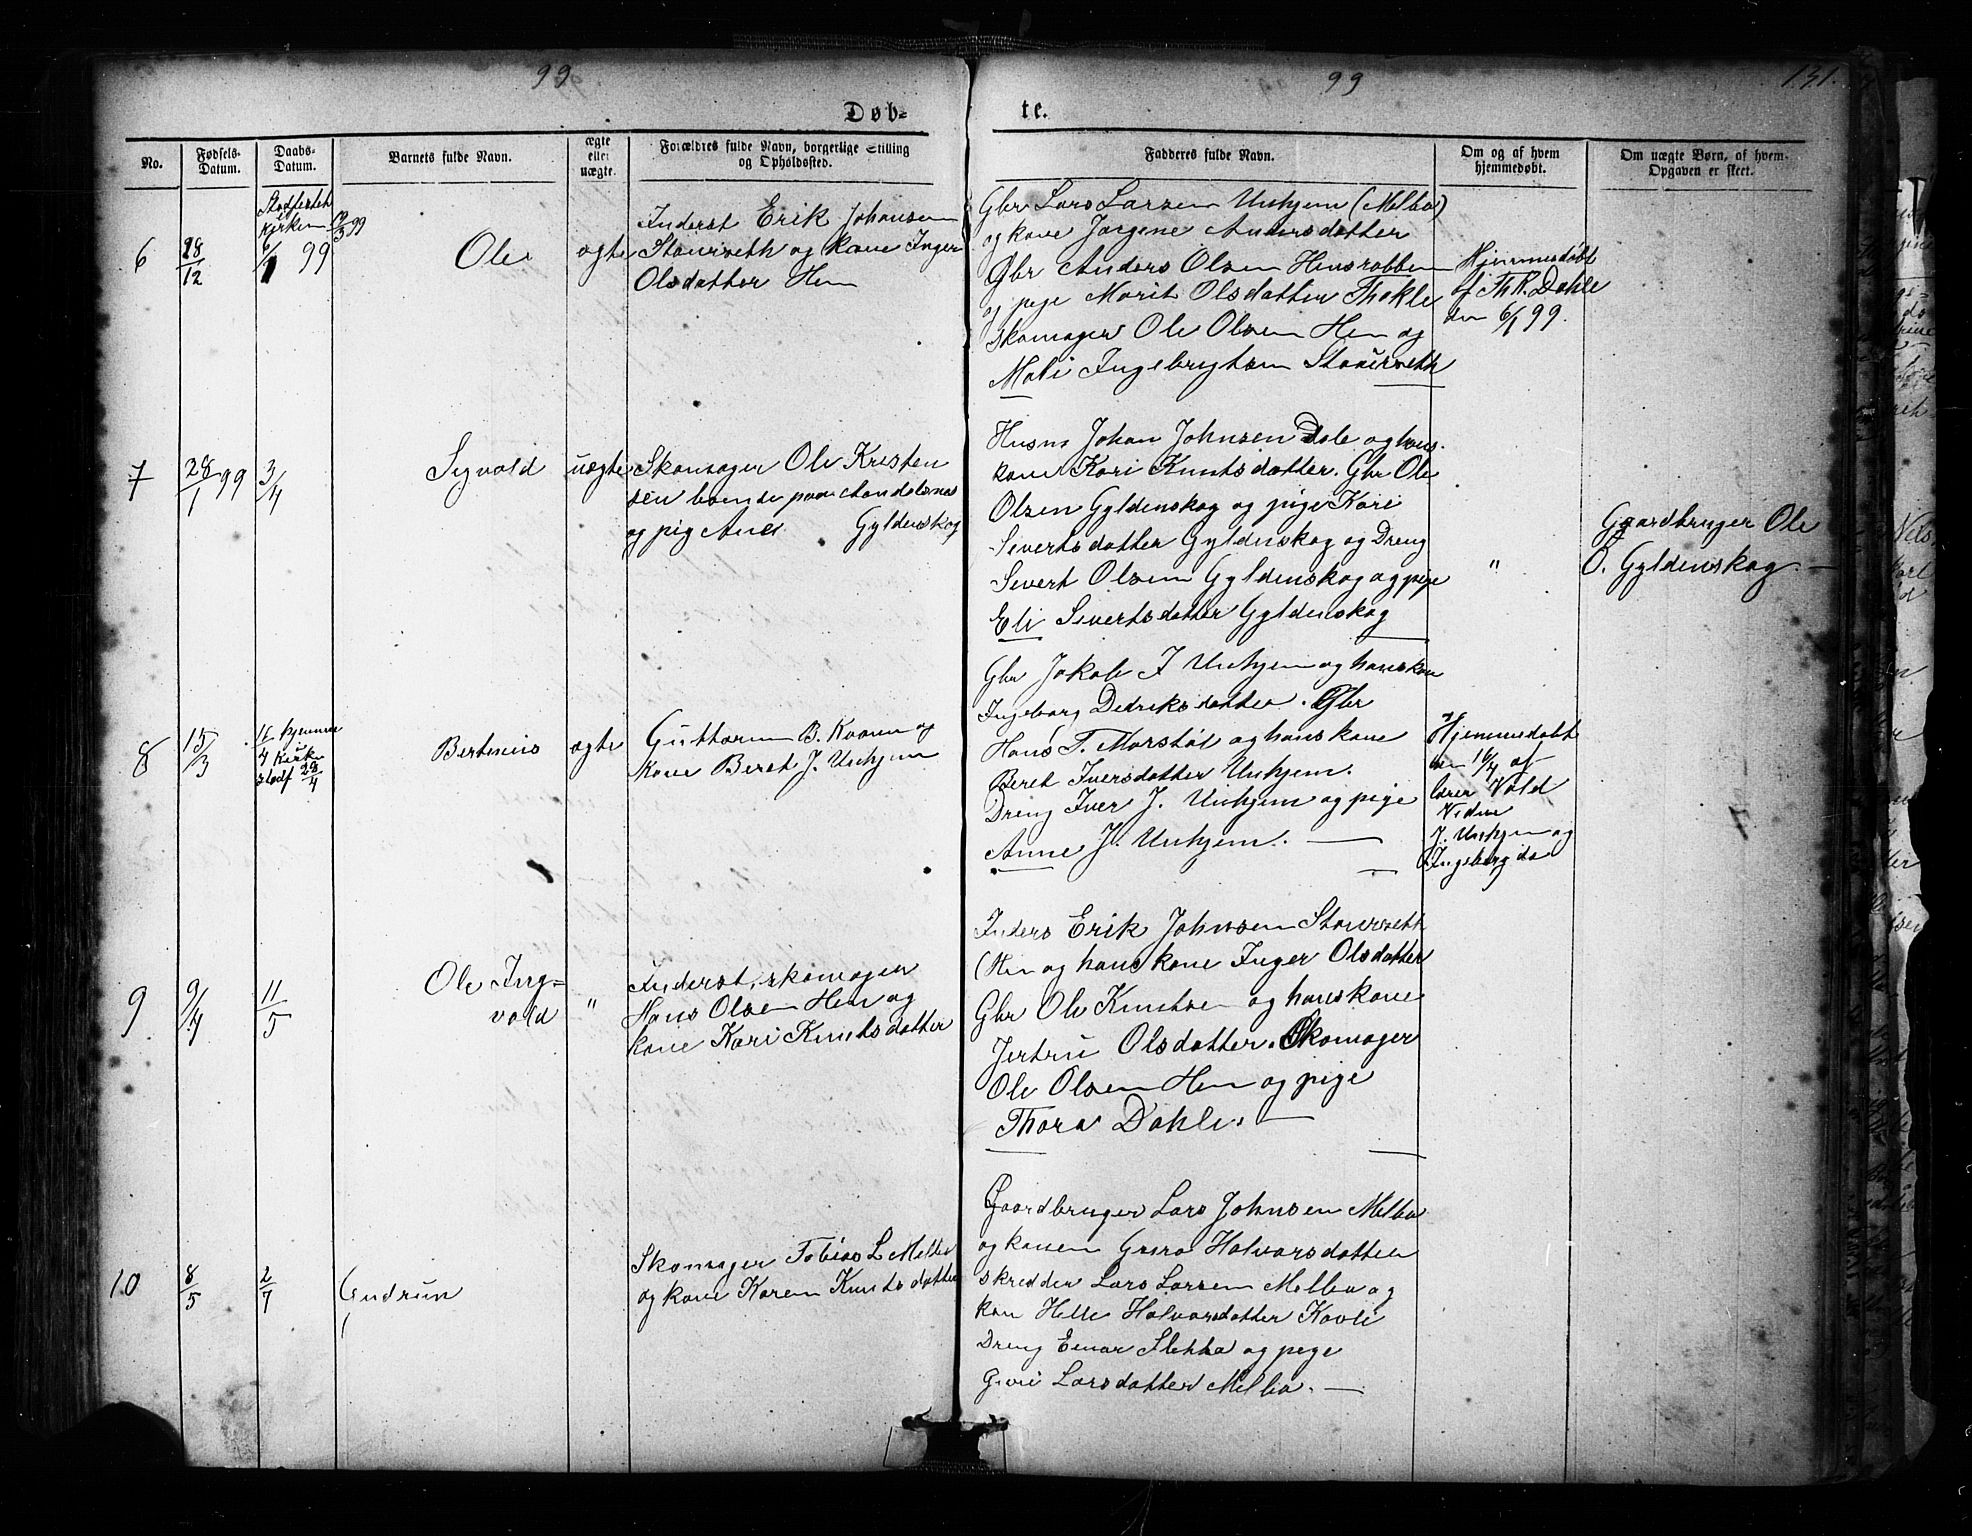 99
99
131.
Døb=
te.
No.
Fødsels-Datum.
Daabs-Datum.
Barnets fulde Navn.
ægte eller uægte.
Forældres fulde Navn, borgerlige Stilling og Opholdssted.
Fadderes fulde Navn.
Om og af hvem hjemmedøbt.
Om uægte Børn, af hvem Opgaven er skeet.
6
28/12
Stadfestet
Kirken 12/3 99
6/1 99
Ole
ægte
Inderst Erik Johansen
Stourseth og kone Inger
Olsdatter Hen
Gbr Lars Larsen Unhjem (Melbø)
og kone Jørgene Andersdatter
Gbr Anders Olsen Hensrabben
og pige Marit Olsdatter Thokle
Skomager Ole Olsen Hen og
Mali Ingebrigtsen Stourseth
Hjemmedøbt
af Th R. Dahle
den 6/1 99.
7
28/1 99
3/4
Sigvald
uægte
Skomager Ole Kristen
sen boende paa Aandalsnes
og pig Ane Gyldenskog
Husm Johan Johnsen Dale og hans
kone Kari Knutsdatter. Gbr Ole
Olsen Gyldenskog og pige Kari
Sivertsdatter Gyldenskog og Dreng
Sivert Olsen Gyldenskog og pige
Eli Sivertsdatter Gyldenskog
"
Gaardbruger Ole
O. Gyldenskog. —
8
15/3
16 hjemme
4 Kirke
stadf 23/4
Bertinius
ægte
Guttorm B. Kavem og
Kone Beret J. Unhjem
Gbr Jakob I Unhjem og hans kone
Ingeborg Dedriksdatter. Gbr
Hans T. Marstøl og hans kone
Beret Iversdatter Unhjem.
Dreng Iver J. Unhjem og pige
Anne J. Unhjem. —
Hjemmedøbt
den 16/4 af
lærer Vold
Vidne
J. Unhjem og
Ingeborg do
9
9/4
11/5
Ole Ing-
vald
"
Inderst, skomager
Hans Olsen Hen og
kone Kari Knutsdatter
Inders Erik Johnsen Stourseth
(Hen og hans kone Inger Olsdatter
Gbr Ole Knutsen og hans kone
Jertru Olsdatter. Skomager
Ole Olsen Hen og pige
Thora Dahle. —
10
8/5
2/7
Gudrun
Skomager Tobias L Melbø
og kone Karen Knutsdatter
Gaardbruger Lars Johnsen Melbø
og konen Guro Halvorsdatter
skredder Lars Larsen Melbø og
kon Helle Halvorsdatter Kavli
Dreng Einar Flekka og pige
Guri Larsdatter Melbø. —